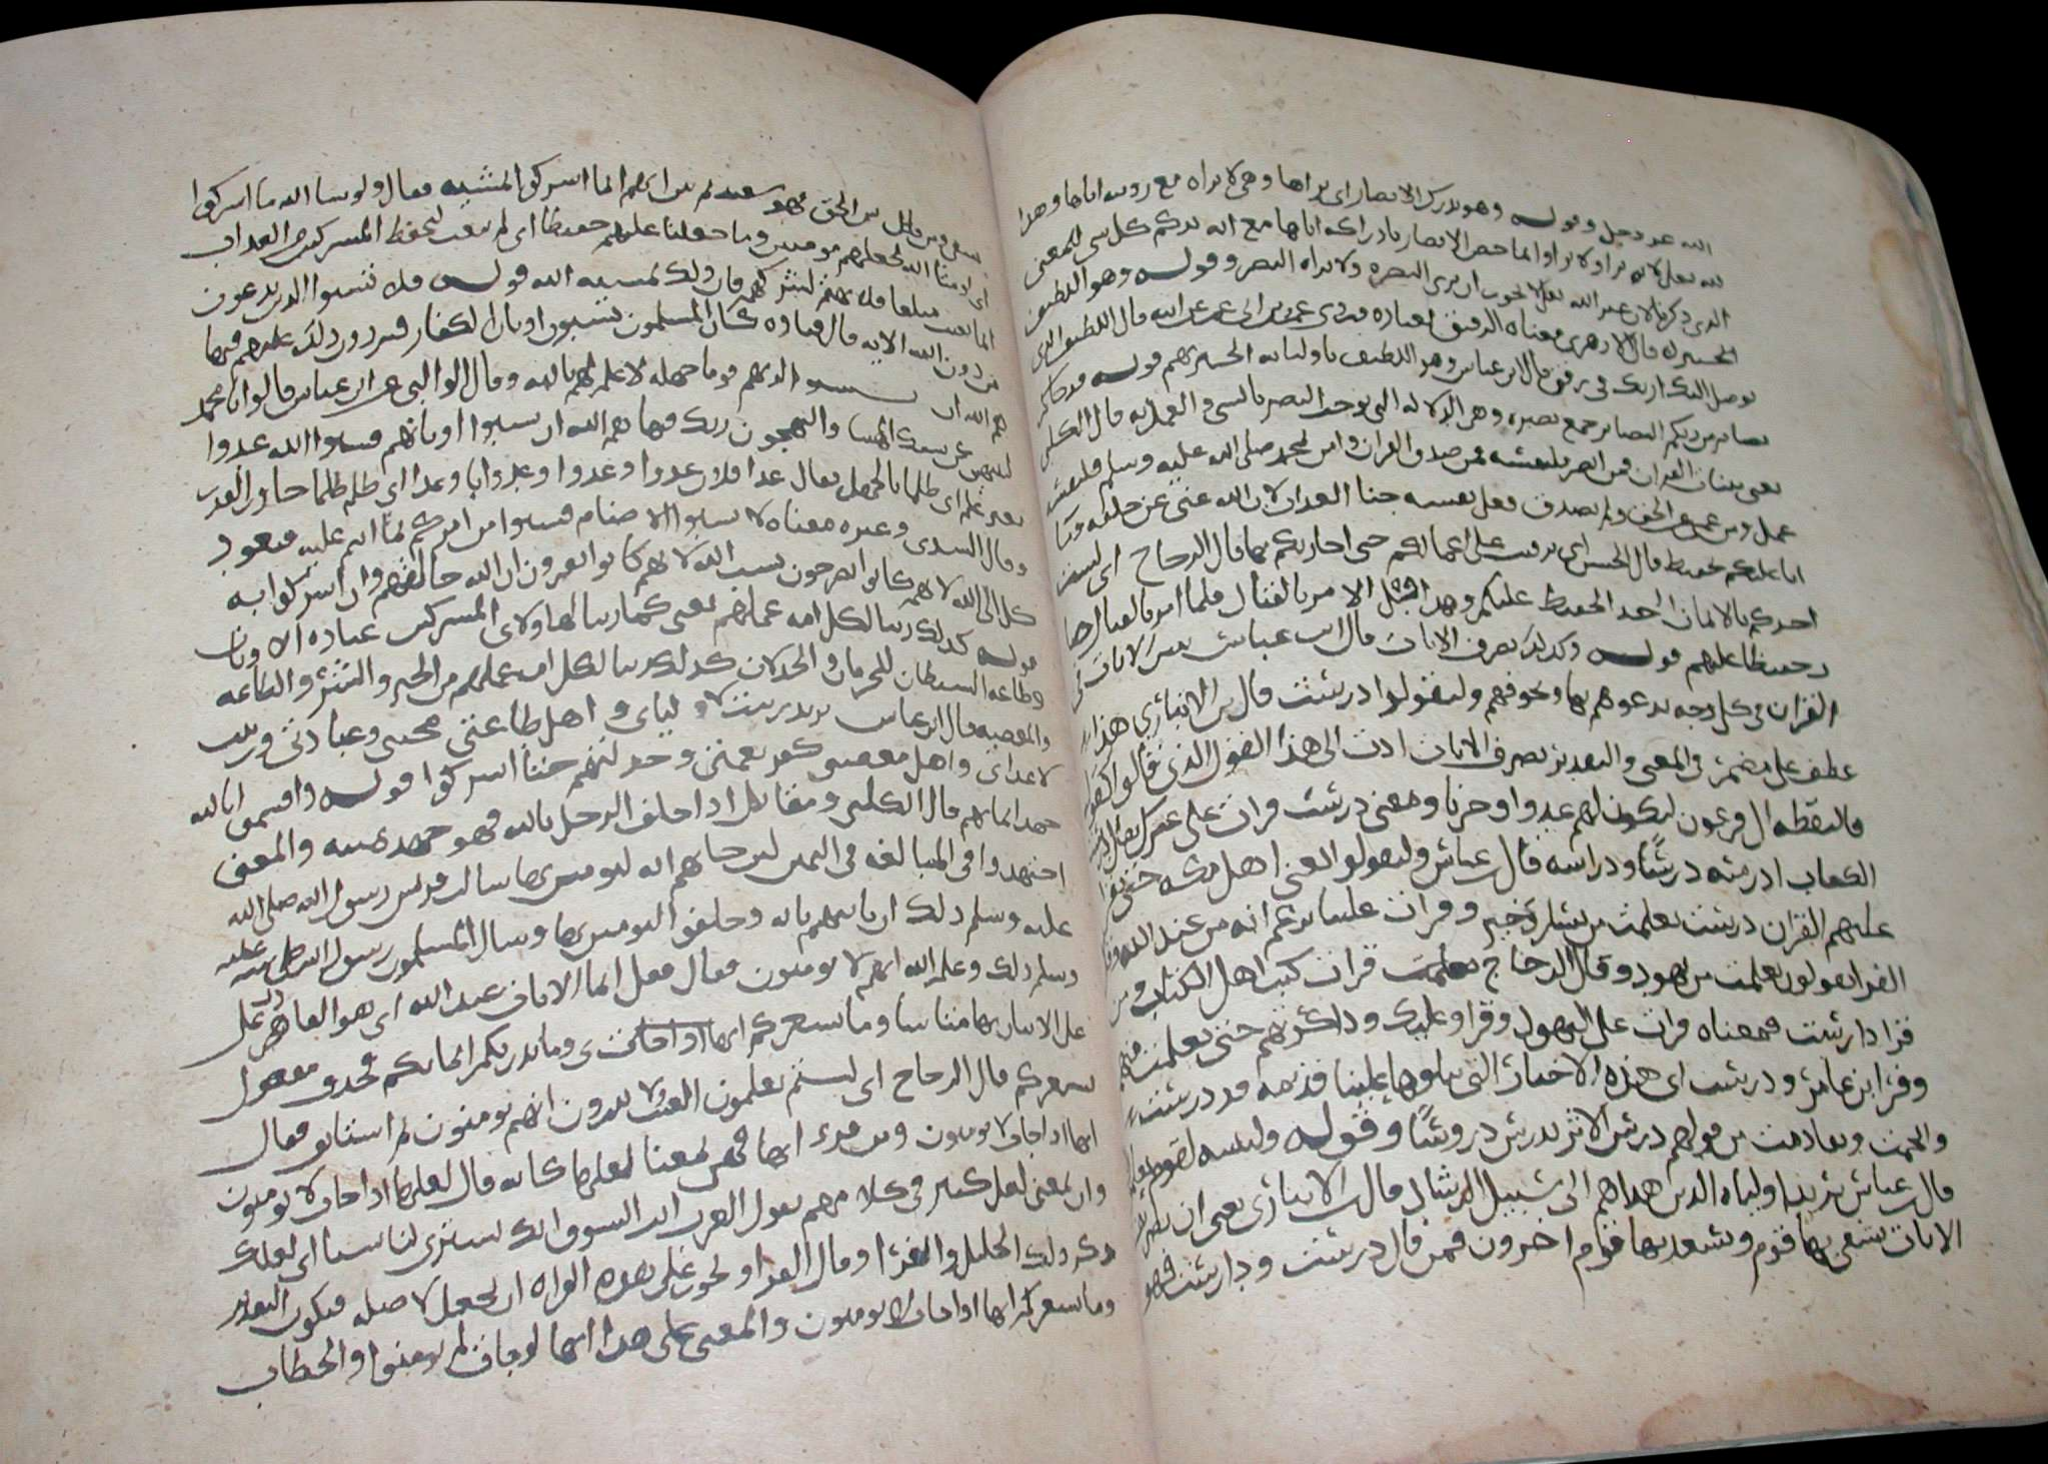 الله عز وجل وقوله وهو يدرك الابصار اى يراها وهى لا يراه مع رويه اياها وهدا
لله تعلى لانه يرا ولا يرا وانما خص الابصار بادراكه اياها مع انه يدرك كل شى للمعنى
الذي ذكرنا لان غير الله تعلى لا يجوز ان يرى البصر ولا يراه البصر وقوله وهو اللطيف
الخبير قال الازهرى معناه الرفيق بعباده عمرو بن ابى عمرو عن ابيه قال اللطيف الذى
يوصل اليك اربك فى رفق قال ابن عباس وهو اللطيف باوليائه الخبير بهم قوله قد جاكم
بصاير من ربكم البصاير جمع بصيره وهى الدلاله التى توجب البصر بالشى والعلم به قال الكلبى
يعنى بينات القران فمن ابصر فلنفسه فمن صدق القران وامن بمحمد صلى الله عليه وسلم فلنفسه
عمل ومن عمى عن الحق ولم يصدق فعلى نفسه جنا العذاب لان الله غنى عن خلقه وما
انا عليكم بحفيظ قال الحسن اى برقيب على اعمالكم حتى اجازيكم بها قال الزجاج اى لست
اخذكم بالايمان اخذ الحفيظ عليكم وهدا قبل الامر بالقتال فلما امر بالقتال صار
حفيظا عليهم قوله وكذلك نصرف الايات قال ابن عباس نبين الايات فى
القران فى كل وجه ندعوهم بها ونخوفهم وليقولوا درست قال بن الانبارى هذا
عطف على مضمر فى المعنى والتقدير نصرف الايات ادت الى هذا القول الذى قالوا كقوله
فالتقطه ال فرعون ليكون لهم عدوا وحزنا ومعنى درست قرات على غيرك يقال درس
الكتاب ادرسه درسًا ودراسه قال عباس وليقولوا يعنى اهل مكه حين تقرا
عليهم القران درست تعلمت من يسار وخير وقرات علينا تزعم انه من عند الله وقال
الفرا يقولون تعلمت من يهود وقال الزجاج تعلمت قرات كتب اهل الكتاب ومن
قرا دارست فمعناه قرات على اليهود وقراو عليك وذاكرتهم حتى تعلمت منهم
وقرا ابن عامر ودرست اى هذه الاخبار التى تتلوها علينا قديمه قد درست
وامحت وتقادمت من قولهم درس الاثر يدرس دروسًا وقوله ولنبينه لقوم يعلمون
قال عباس يريد اولياه الذين هداهم الى سبيل الرشاد قال الانبارى يعنى ان
الايات يشقى بها قوم ويسعد بها قوم اخرون فمن قال درست ودارست فهو
شقى ومن قبل الحق فهو سعيد انما اشركوا لمشيه فقال ولو شا الله ما اشركوا
اى لو شا الله لجعلهم مومنين وما جعلناك عليهم حفيظا اى لم تبعث لتحفظ المشركين من العذاب
انما بعثت مبلغا فلا تهتم لشركهم فان ذلك لمشيه الله قوله ولا تسبوا الذين يدعون
من دون الله الايه قال قتاده كان المسلمون يسبون اوثان الكفار فيردون ذلك عليهم فنهاهم
الله ان يستسبوا لربهم قوما جهله لا علم لهم بالله وقال الوالبى عن ابن عباس قالوا يا محمد
لتنتهين عن سبك الهتنا او لنهجون ربك فنهاهم الله ان يسبوا اوثانهم فيسبوا الله عدوا
بغير علم اى ظلما بالجهل يقال عدا فلان عدوا وعدوا وعدوانا وعدا اى ظلم ظلما جاوز القدر
وقال السدى وغيره معناه لا تسبوا الاصنام فيسبوا من امركم بما انتم عليه فيعود
كله الى الله لا انهم كانوا يصرحون بسب الله لانهم كانوا يعرفون ان الله خالقهم وان اشركوا به
قوله كذلك زينا لكل امه عملهم يعنى كما زينا لهاولاى المشركين عباده الاوثان
وطاعه الشيطان للحرمان والخذلان كذلك زينا لكل امه عملهم من الخير والشر والطاعه
والمعصيه قال ابن عباس يريد زينت لاوليائى واهل طاعتى محبتى وعبادتى وزينت
لاعداى واهل معصيتى كفر نعمتى وخذلتهم حتى اشركوا قوله واقسموا بالله
جهد ايمانهم قال الكلبى ومقاتل اذا حلف الرجل بالله فهو جهد يمينه والمعنى
اجتهدوا فى المبالغه فى اليمين لين جاتهم ايه ليومنن بها سالت قريش رسول الله صلى الله
عليه وسلم ذلك ان ياتيهم بايه وحلفوا ليومنن بها وسال المسلمون رسول الله صلى الله عليه
وسلم ذلك وعلم الله انهم لا يومنون فقال قل انما الايات عند الله اى هو القادر
على الاتيان بها متى شا وما يشعركم انها اذا جات اى وما يدريكم ايمانكم فحذف مفعول
يشعركم قال الزجاج اى لستم تعلمون الغيب ولا تدرون انهم يومنون ثم استانف فقال
انها اذا جات لا يومنون ومن قرا انها فهى بمعنى لعلها كانه قال لعلها اذا جات لا يومنون
وان بمعنى لعل كثير فى كلامهم يقول العرب ايت السوق انك تشترى لنا شيا اى لعلك
ذكر ذلك الخليل والفرا وقال الفرا ويجوز على هذه القراه ان تجعل لا صله فيكون التقدير
وما يشعركم انها اذا جات لا يومنون والمعنى على هدا انها لو جات لم يومنوا والخطاب